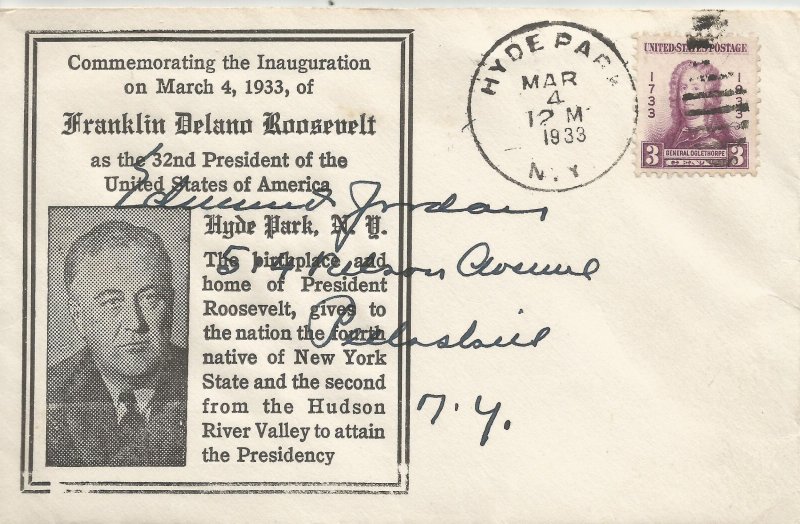 Commemorating the Inauguration
on March 4, 1933, of
Franklin Delano Roosevelt
as the 32nd President of the
United States of America
Hyde Park, N. Y.
The birthplace and
home of President
Roosevelt, gives to
the nation the fourth
native of New York
State and the second
from the Hudson
River Valley to attain
the Presidency
HYDE PARK
MAR
4
12 M
1933
N.Y
UNITED STATES POSTAGE
1733
1933
GENERAL OGLETHORPE
3 CENTS 3
Edmund Jordan
514 Nelson Avenue
Peekskill
N.Y.